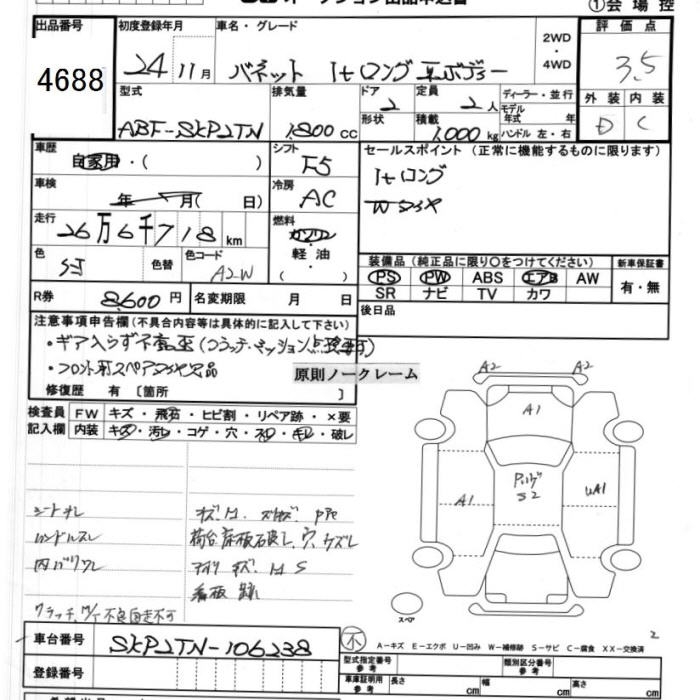 オークション出品申込書
①会場控
出品番号 初度登録年月 車名・グレード 2WD ・ 4WD 評価点
4688 24 11月 バネット 1tロング 3.5
型式 排気量 ドア 定員 ディーラー・並行 外装 内装
ABF-SKP2TN 1,800cc 2 2人 モデル年式 年 D C
形状 積載 1,000kg ハンドル 左・右
車歴 自家用・( ) シフト F5 セールスポイント(正常に機能するものに限ります)
車検 年 月( 日) 冷房 AC 1tロング
Wタイヤ
走行 26万6千718km 燃料 ガソリン・軽油・( )
色 色替 色コード A2W
装備品(純正品に限り○をつけてください) 新車保証書
PS PW ABS エアB AW 有・無
SR ナビ TV カワ
R券 8,600円 名変期限 月 日 後日品
注意事項申告欄(不具合内容等は具体的に記入して下さい)
・ギア入らず不動車(クラッチ・ミッション点検要す)
・フロント用スペアタイヤ欠品
原則ノークレーム
修復歴 有[箇所 ]
検査員記入欄 FW キズ・飛石・ヒビ割・リペア跡・×要
内装 キズ・汚レ・コゲ・穴・スレ・キレ・破レ
A2 A2
A1
A1 S2 WA1
シートキレ
ハンドルスレ
内バリワレ
荷台床板石砕し、穴、ケズレ
看板跡
クラッチ、M/T不良自走不可
スペア
2
車台番号 SKP2TN-106238
不 A-キズ E-エクボ U-凹み W-補修跡 S-サビ C-腐食 XX-交換済
登録番号 型式指定番号 参考 類別区分番号 参考
車庫証明用 参考 長さ cm 幅 cm 高さ cm